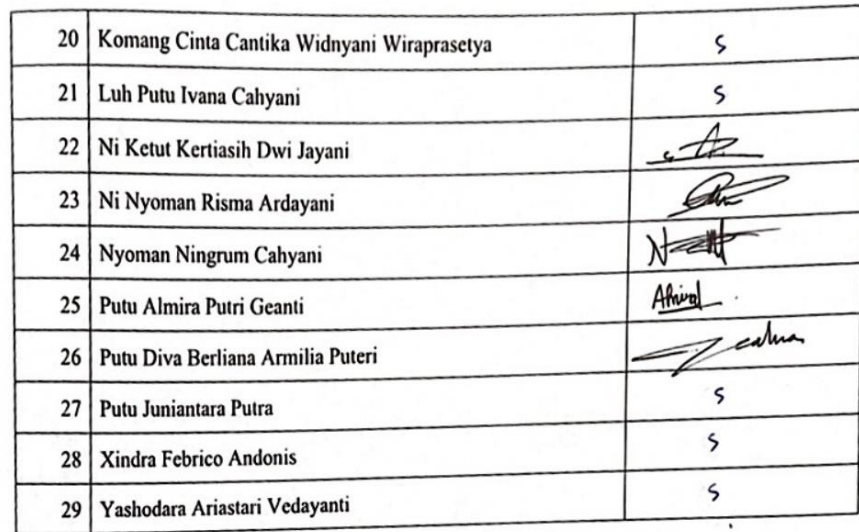 20 Komang Cinta Cantika Widnyani Wiraprasetya S
21 Luh Putu Ivana Cahyani S
22 Ni Ketut Kertiasih Dwi Jayani
23 Ni Nyoman Risma Ardayani
24 Nyoman Ningrum Cahyani
25 Putu Almira Putri Geanti
26 Putu Diva Berliana Armilia Puteri
27 Putu Juniantara Putra S
28 Xindra Febrico Andonis S
29 Yashodara Ariastari Vedayanti S